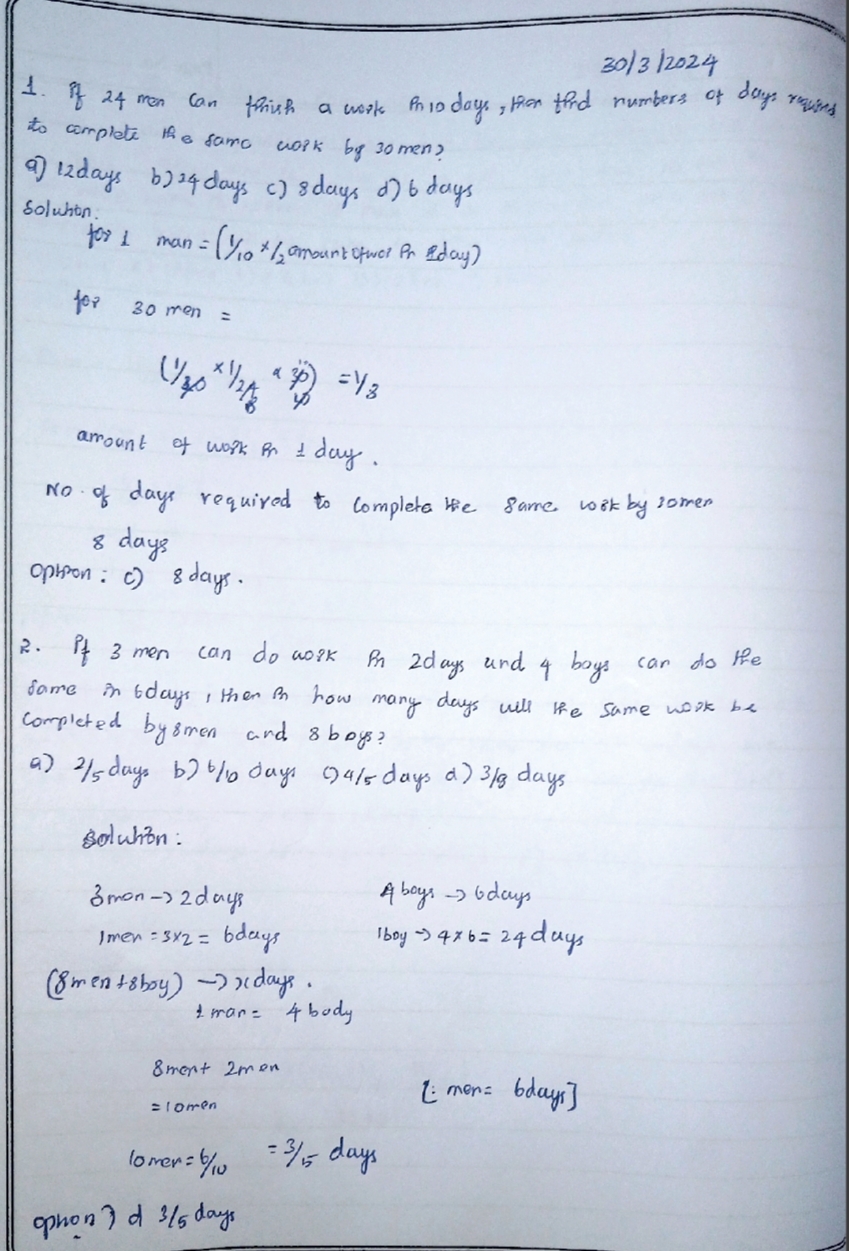 30/3/2024
1. If 24 men can finish a work in 10 days, then find numbers of days required
to complete the same work by 30 men?
a) 12days b) 24 days c) 8 days d) 6 days
Solution:
for 1 man = (1/10 × 1/2 amount of wor in 1day)
for 30 men =
= 1/8
amount of work in 1 day.
No. of days required to complete the same work by 30men
8 days
Option: c) 8 days.
2. If 3 men can do work in 2days and 4 boys can do the
same in 6days, then in how many days will the same work be
completed by 8men and 8 boys?
a) 2/5 days b) 6/10 days c) 4/5 days d) 3/8 days
Solution:
3men -> 2days 4 boys -> 6days
1men = 3×2 = 6days 1boy -> 4×6 = 24 days
(8men+8boy) -> x days.
1 man = 4 body
8men+ 2men
= 10men [∴ men= 6days]
10men = 6/10 = 3/5 days
option) d 3/5 days